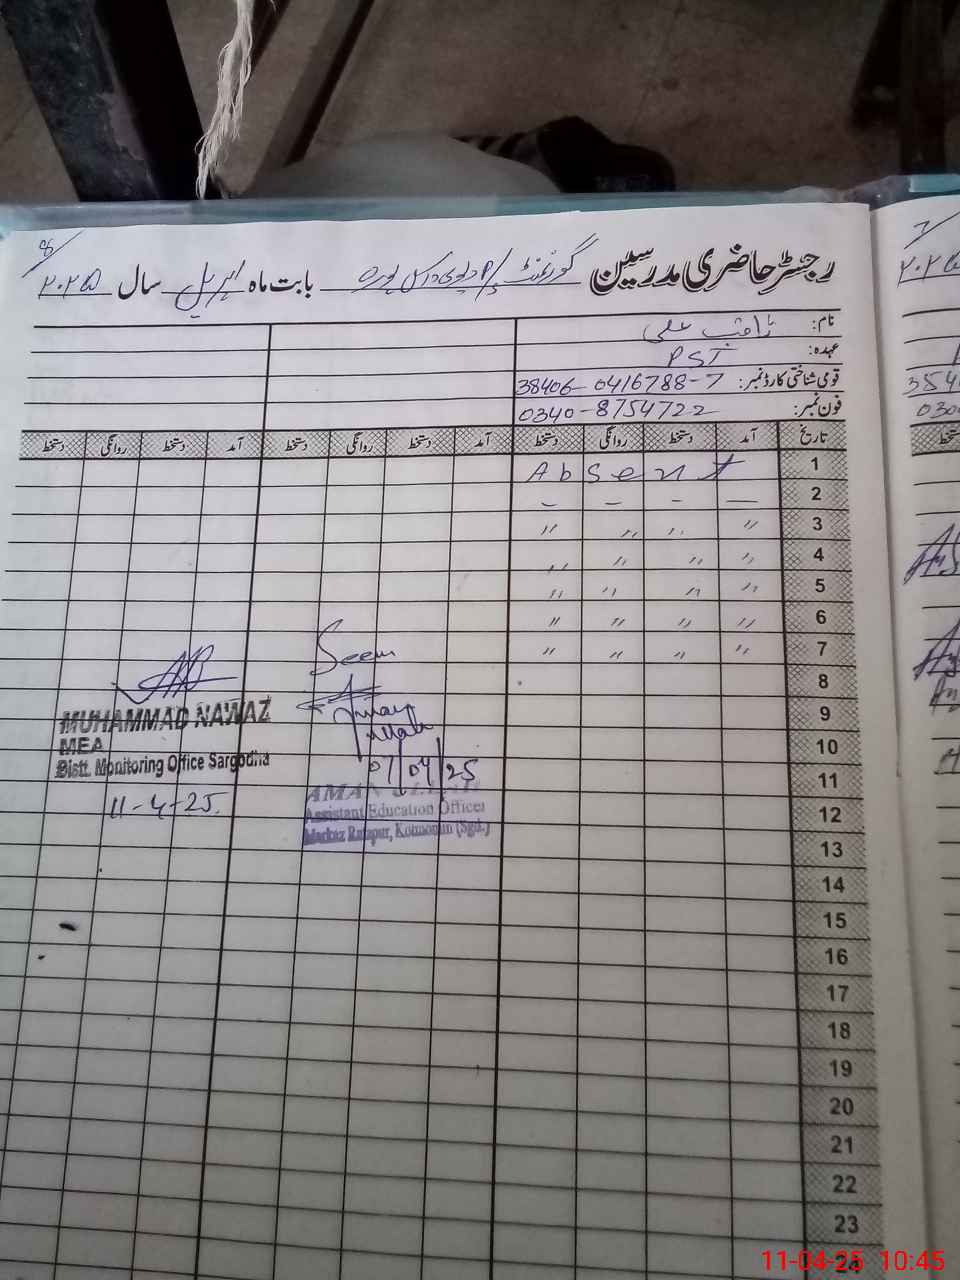 رجسٹر حاضری مدرسین گورنمنٹ بابت ماہ اپریل سال ۲۰۲۵
8
نام: علی
عہدہ: PST
قومی شناختی کارڈ نمبر: 38406-0416788-7
فون نمبر: 0340-8754722
تاریخ آمد دستخط روانگی دستخط آمد دستخط روانگی دستخط آمد دستخط روانگی دستخط
1 Absent
2 — - - -
3 " " " "
4 " " " "
5 " " " "
6 " " " "
7 " " " "
8
9
10
11
12
13
14
15
16
17
18
19
20
21
22
23
24
Seen
Aman
Ullah
07/04/25
AMAN ULLAH
Assistant Education Officer
Markaz Kotmomin (Sgd.)
MUHAMMAD NAWAZ
MEA
Distt. Monitoring Office Sargodha
11-4-25.
7
۲۰۲۵
354
030
دستخط
11-04-25 10:45